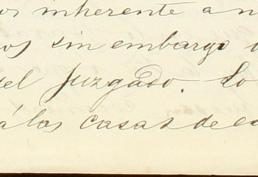 os inherente a n
os sin embargo
del Juzgado. Lo
á las casas de